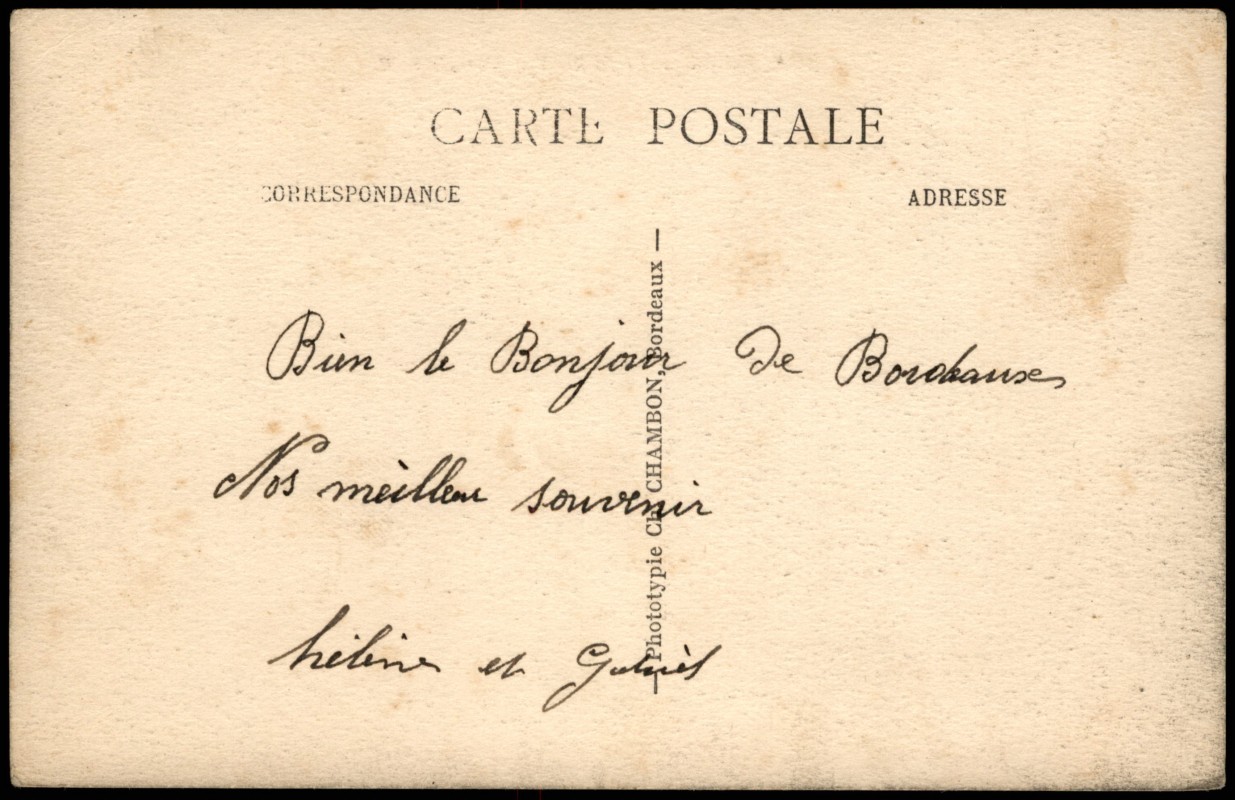 CARTE POSTALE
CORRESPONDANCE
ADRESSE
Bien le Bonjour de Bordeaux
Nos meilleur souvenir
hélène et Gabriel
— Phototypie Ch. CHAMBON, Bordeaux —